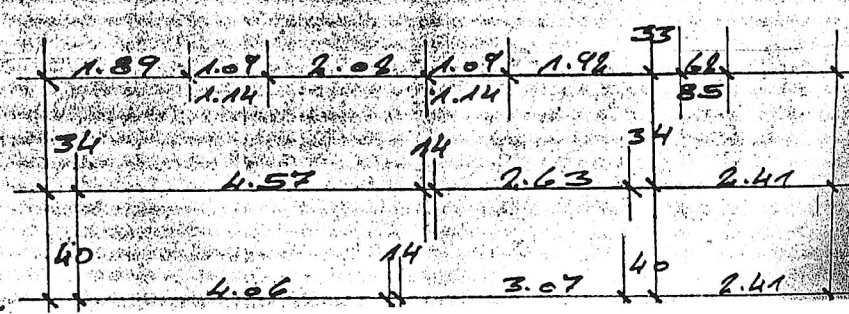 33
1.89 1.09 2.02 1.09 1.92 62
1.14 1.14 85
34 14 34
4.57 2.63 2.41
40 14 40
4.06 3.07 2.41